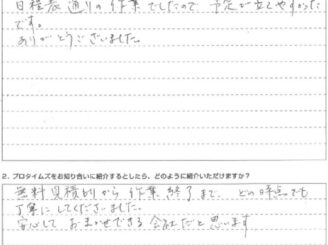 日程表通りの作業でしたので予定が立てやすかった
です。
ありがとうございました。
2. プロタイムズをお知り合いに紹介するとしたら、どのように紹介いただけますか？
無料見積りから作業終了まで、どの時点でも
丁寧にしてくださいました。
安心しておまかせできる会社だと思います